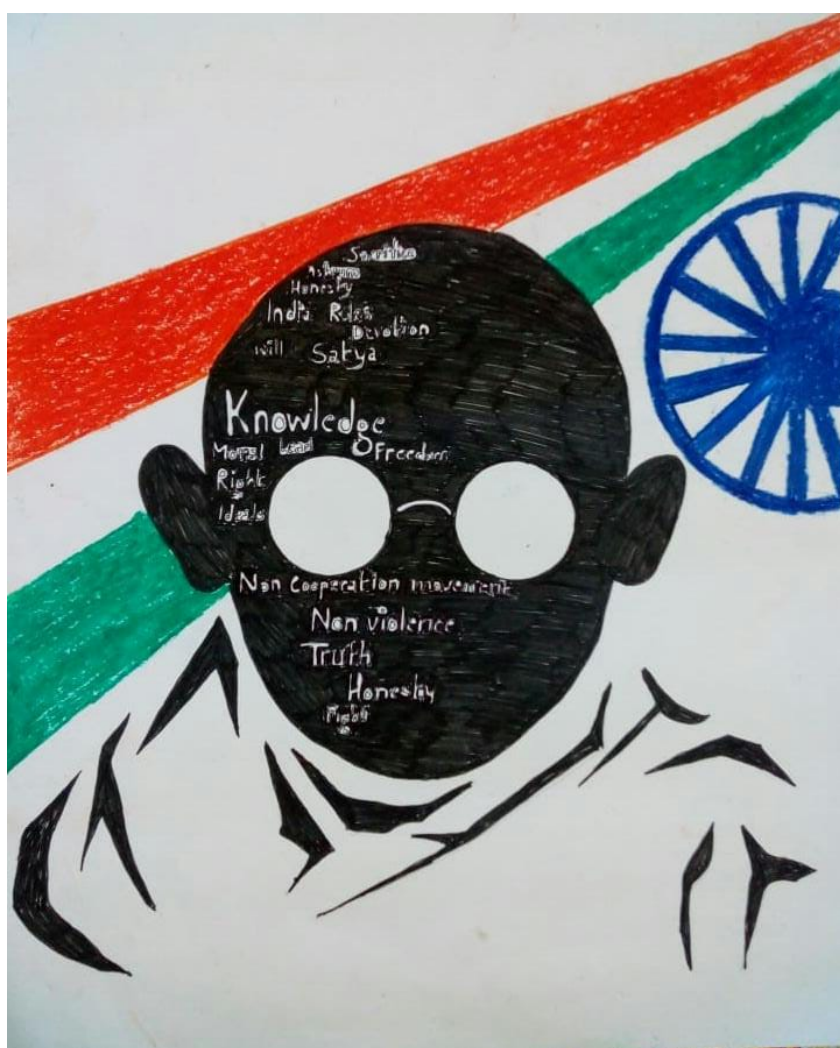 Honesty
India Rules
Devotion
will Satya
Knowledge
Moral Lead Freedom
Right
Ideals
Non Cooperation movement
Non violence
Truth
Honesty